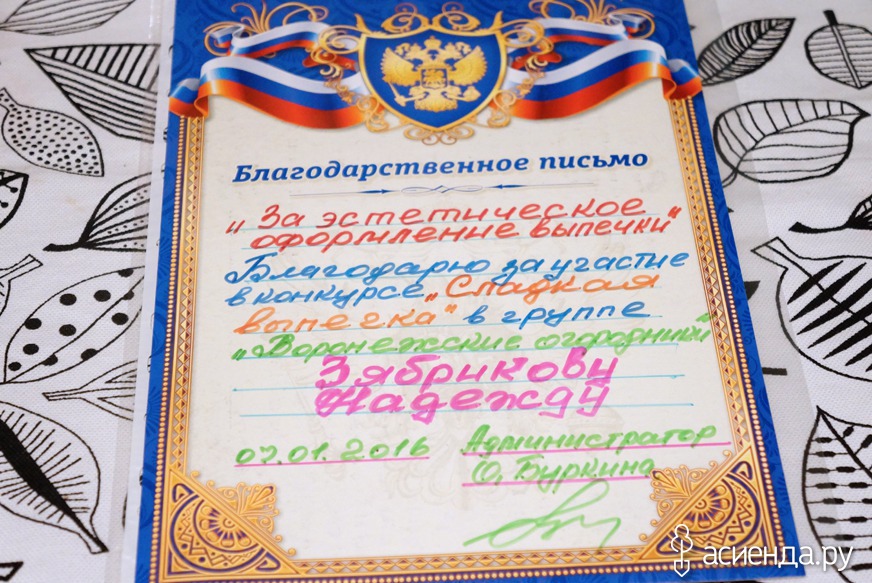 Благодарственное письмо
„За эстетическое
оформление выпечки"
Благодарю за участие
в конкурсе „Сладкая
выпечка" в группе
„Воронежские огородники"
Зябрикову
Надежду
07.01.2016 Администратор
О. Буркина
асиенда.ру